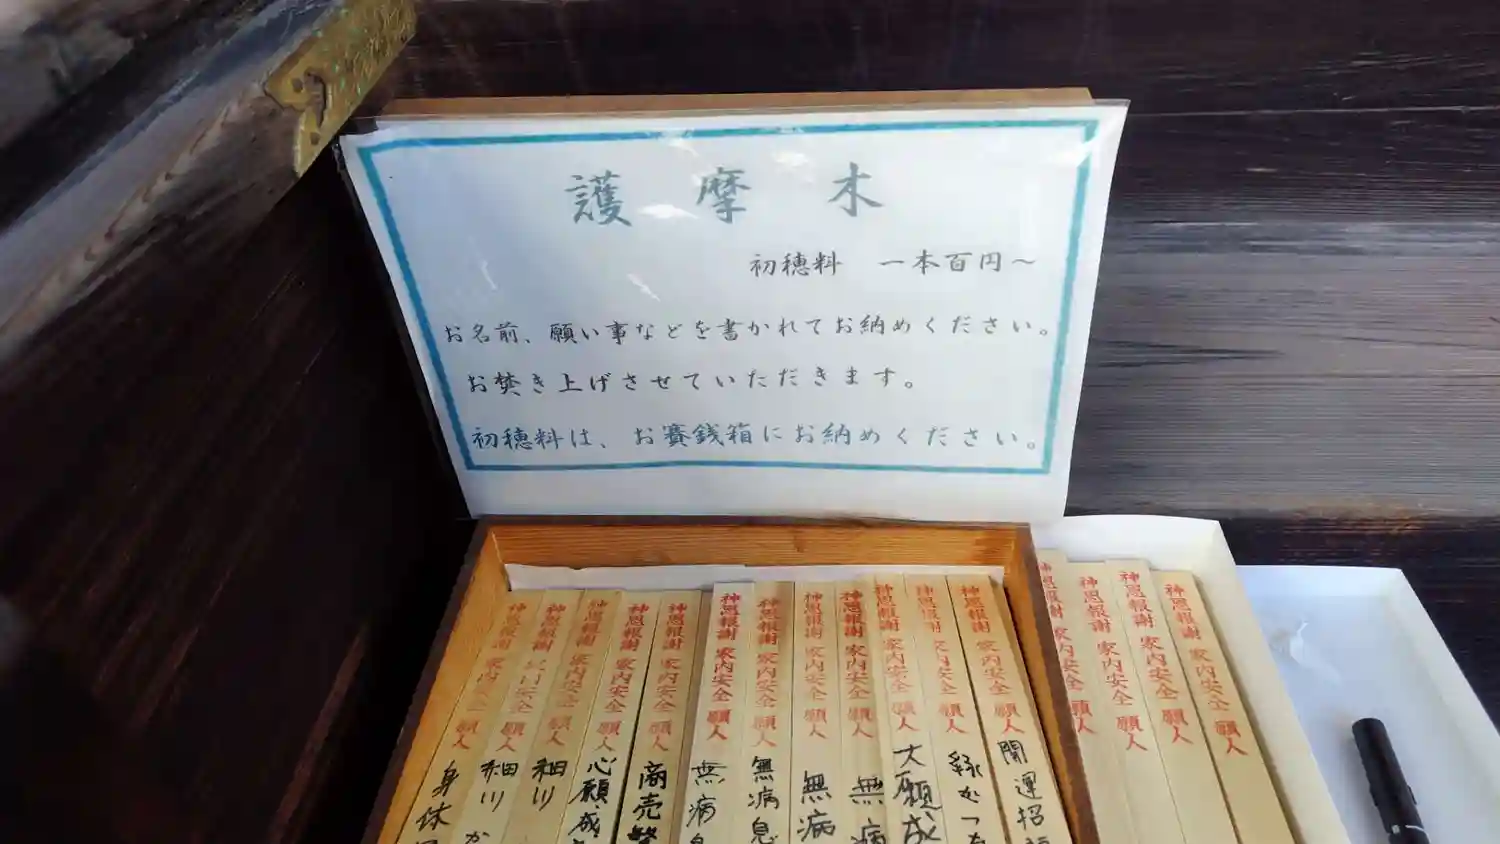 護摩木
初穂料 一本百円～
お名前、願い事などを書かれてお納めください。
お焚き上げさせていただきます。
初穂料は、お賽銭箱にお納めください。
神恩報謝 家内安全 願人
身体
神恩報謝 家内安全 願人
細川 か
神恩報謝 家内安全 願人
細川
神恩報謝 家内安全 願人
心願成
神恩報謝 家内安全 願人
商売繁
神恩報謝 家内安全 願人
無病息
神恩報謝 家内安全 願人
無病息
神恩報謝 家内安全 願人
無病
神恩報謝 家内安全 願人
無病
神恩報謝 家内安全 願人
大願成
神恩報謝 家内安全 願人
神恩報謝 家内安全 願人
開運招福
神恩報謝 家内安全 願人
神恩報謝 家内安全 願人
神恩報謝 家内安全 願人
神恩報謝 家内安全 願人